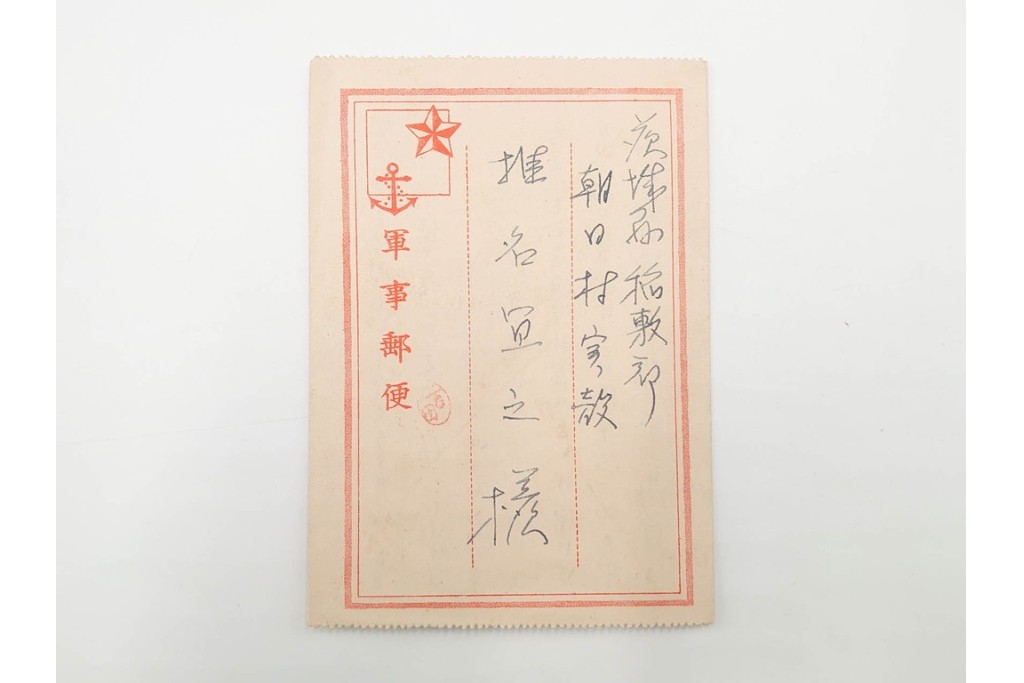 茨城県稲敷郡
朝日村実穀
椎名宣之様
軍事郵便